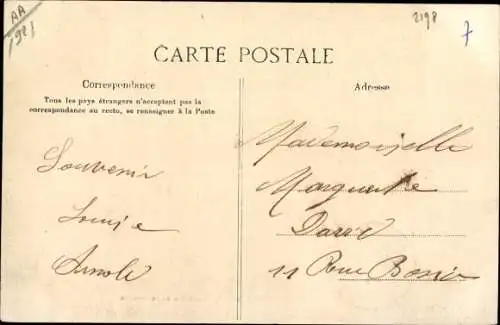 AA
1921
2198
7
CARTE POSTALE
Correspondance
Tous les pays étrangers n'acceptent pas la
correspondance au recto, se renseigner à la Poste
Souvenir
Louise
Arnold
Adresse
Mademoiselle
Marguerite
11 Rue